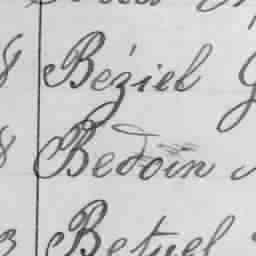 8 Béziel
8 Bedoin
3 Betuel